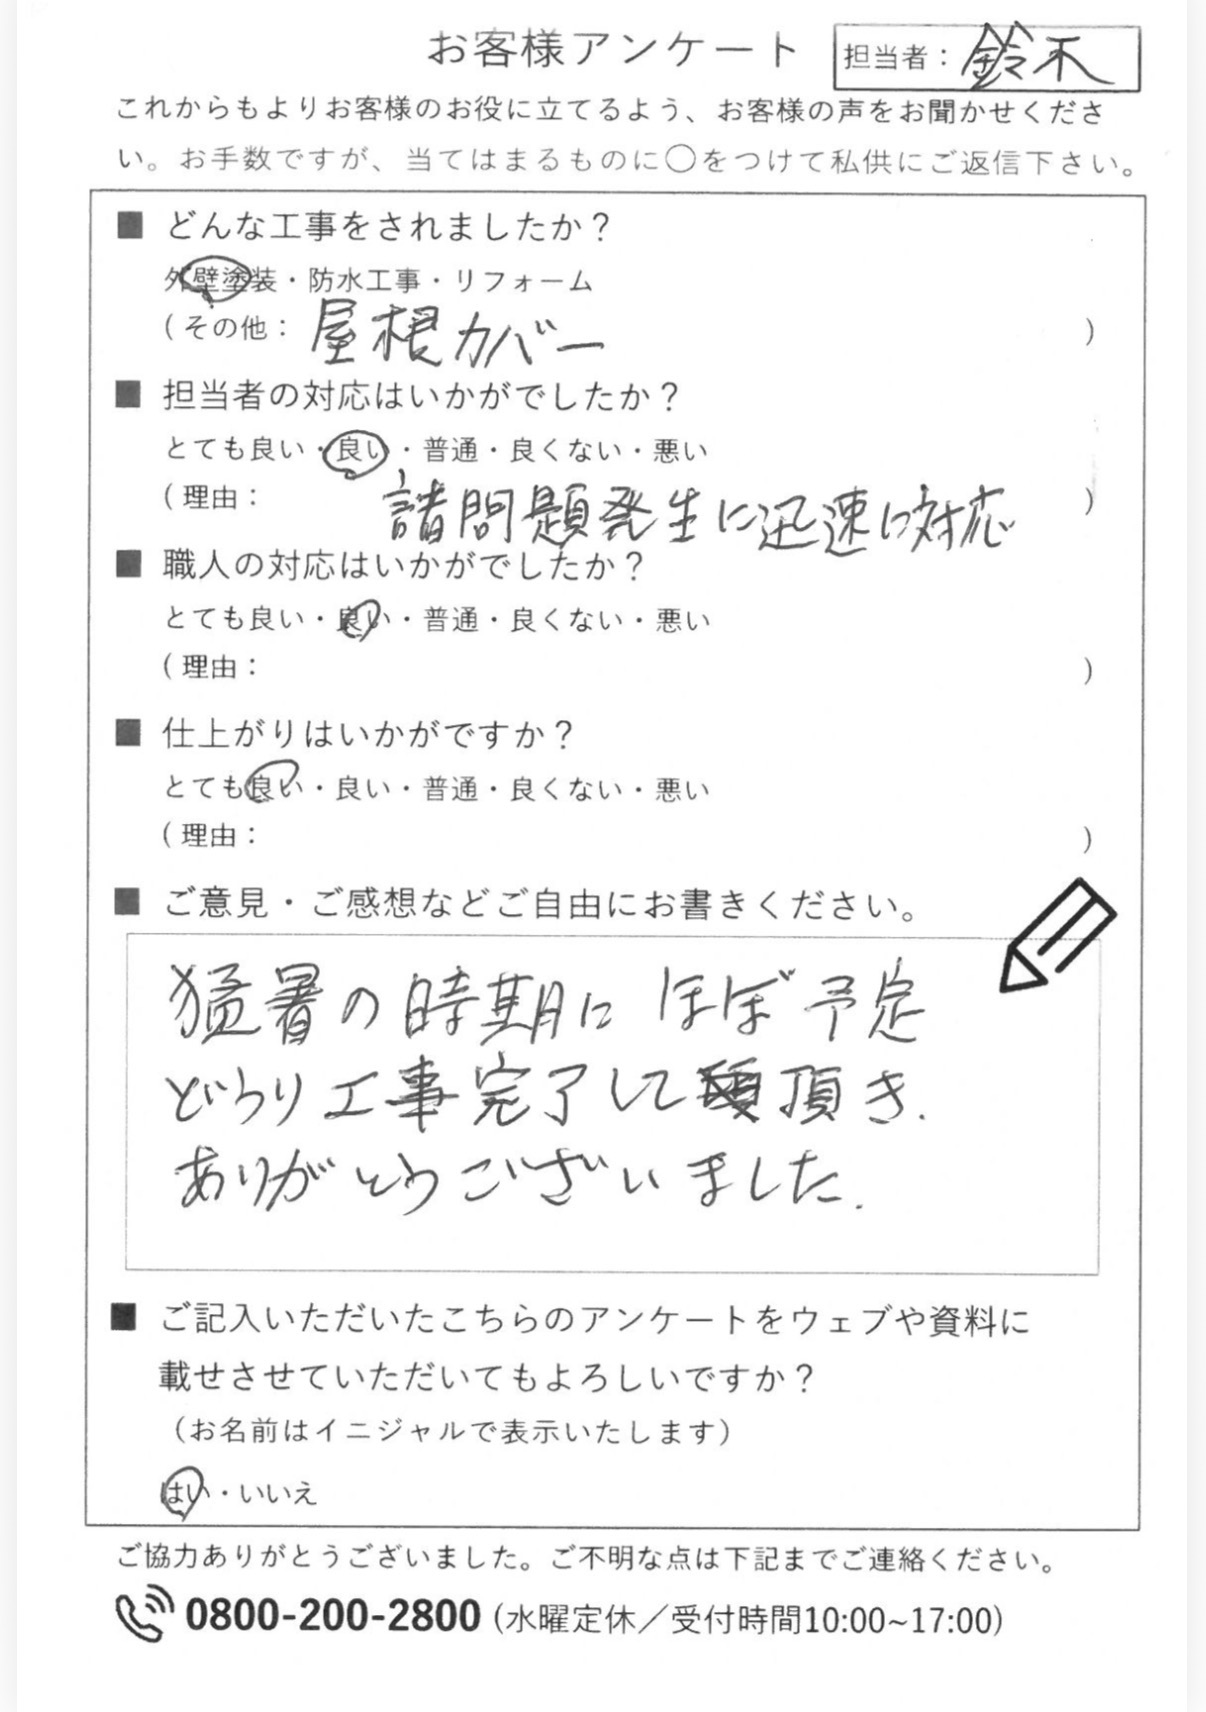 お客様アンケート
担当者：鈴木
これからもよりお客様のお役に立てるよう、お客様の声をお聞かせくださ
い。お手数ですが、当てはまるものに〇をつけて私供にご返信下さい。
■ どんな工事をされましたか？
外壁塗装・防水工事・リフォーム
（その他：屋根カバー）
■ 担当者の対応はいかがでしたか？
とても良い・良い・普通・良くない・悪い
（理由：諸問題発生に迅速に対応）
■ 職人の対応はいかがでしたか？
とても良い・良い・普通・良くない・悪い
（理由：）
■ 仕上がりはいかがですか？
とても良い・良い・普通・良くない・悪い
（理由：）
■ ご意見・ご感想などご自由にお書きください。
猛暑の時期に ほぼ予定
どうり工事完了して頂き.
ありがとうございました.
■ ご記入いただいたこちらのアンケートをウェブや資料に
載せさせていただいてもよろしいですか？
（お名前はイニジャルで表示いたします）
はい・いいえ
ご協力ありがとうございました。ご不明な点は下記までご連絡ください。
0800-200-2800（水曜定休／受付時間10:00~17:00）